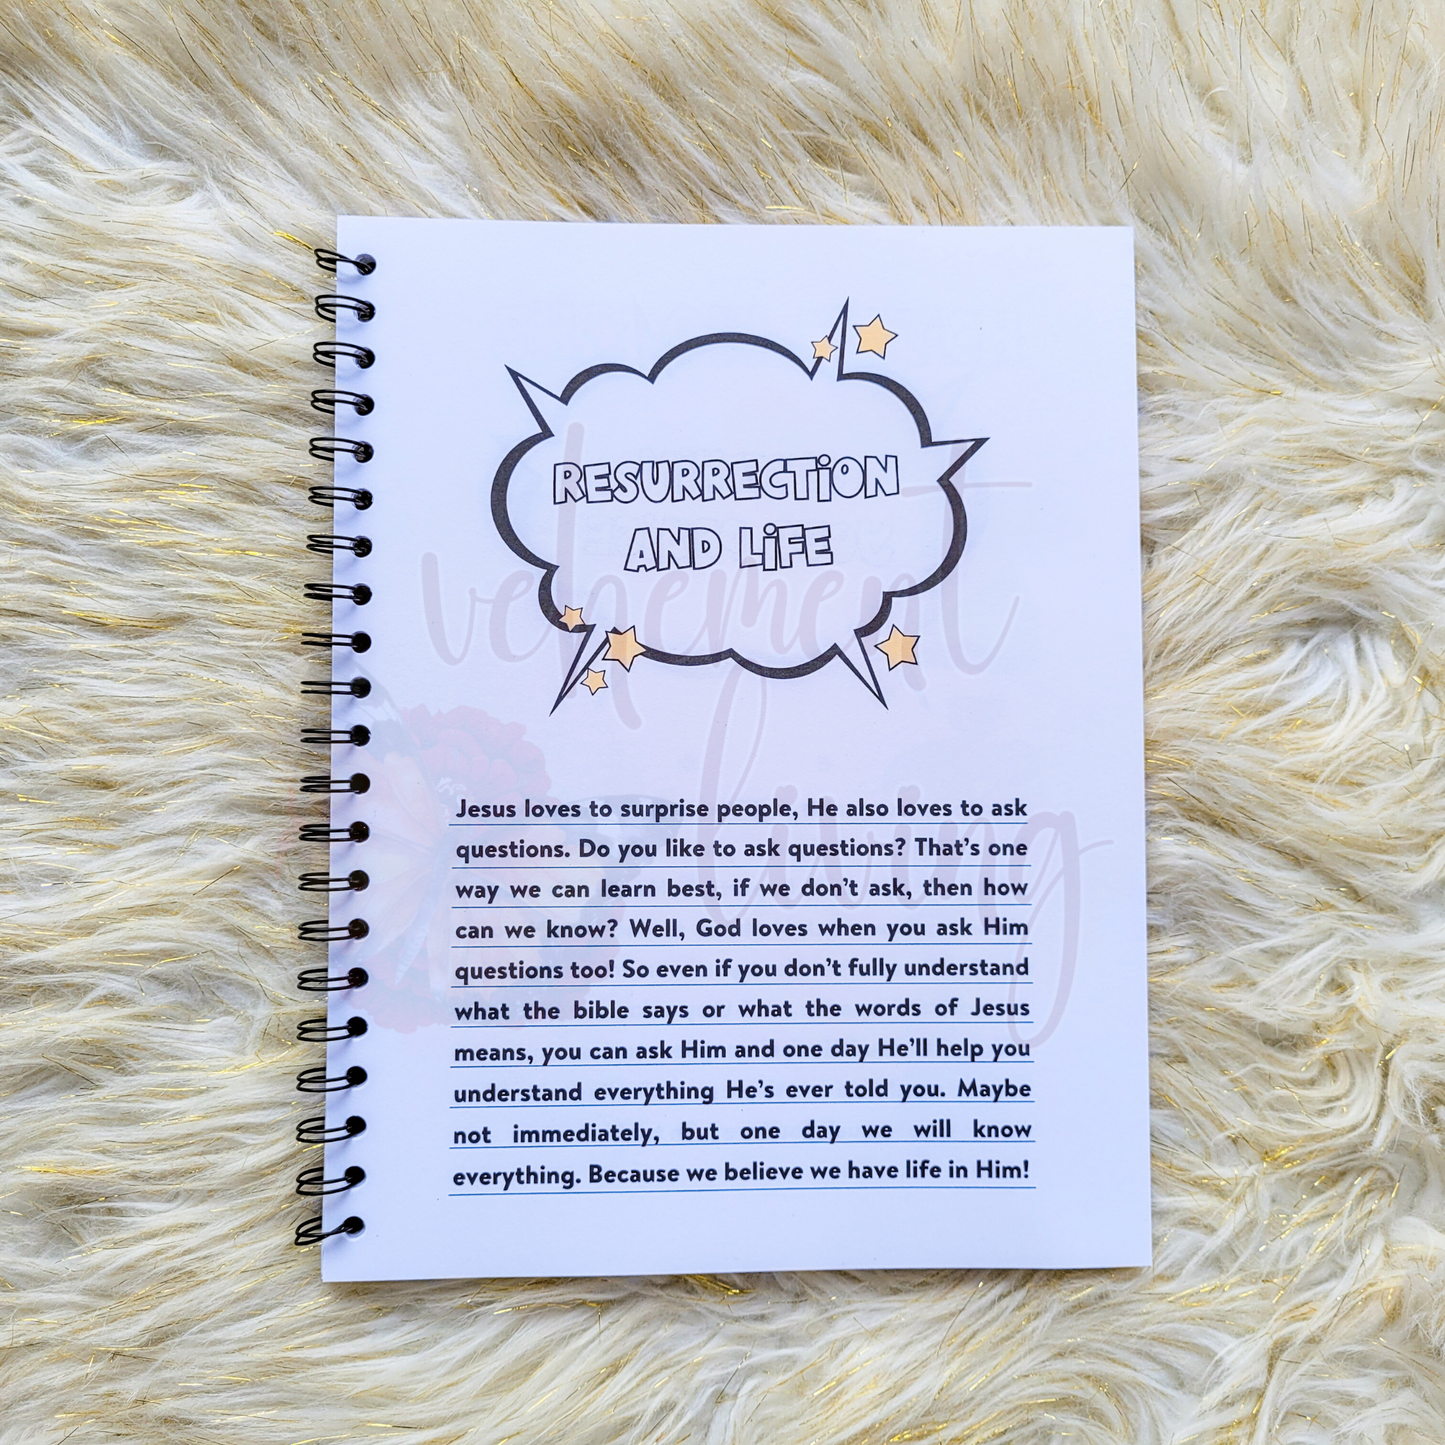 RESURRECTION
AND LiFE
vehement
living
Jesus loves to surprise people, He also loves to ask
questions. Do you like to ask questions? That's one
way we can learn best, if we don't ask, then how
can we know? Well, God loves when you ask Him
questions too! So even if you don't fully understand
what the bible says or what the words of Jesus
means, you can ask Him and one day He'll help you
understand everything He's ever told you. Maybe
not immediately, but one day we will know
everything. Because we believe we have life in Him!